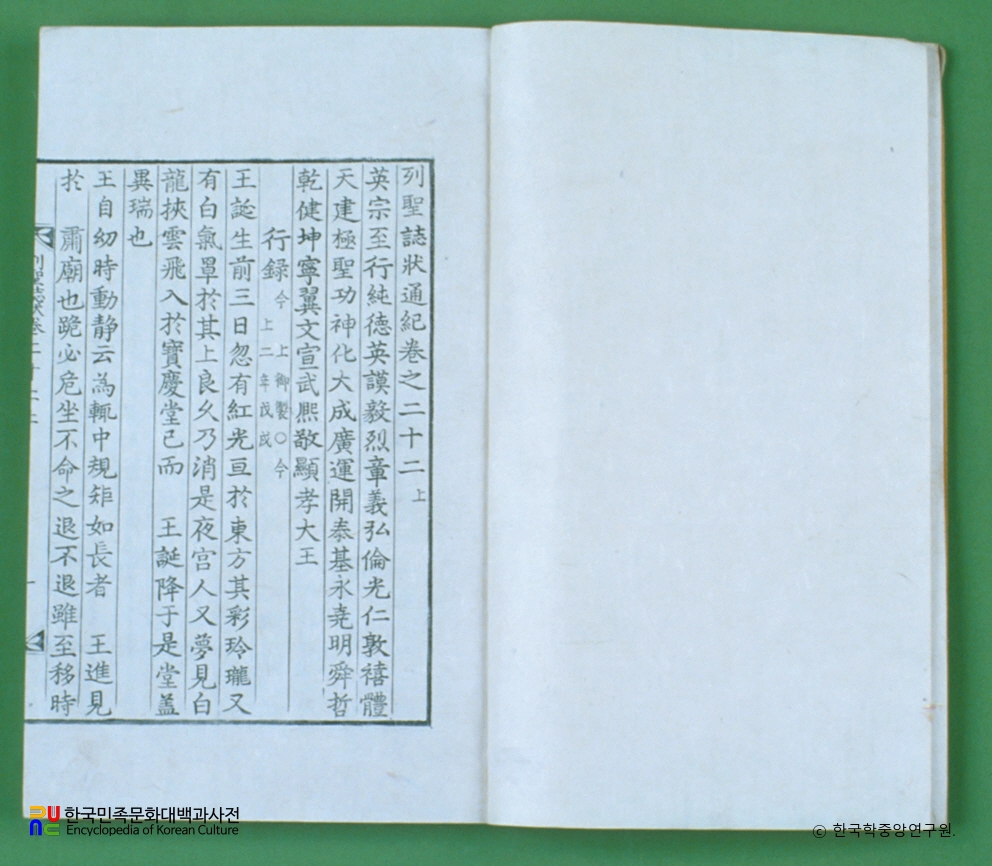 列聖誌狀通紀卷之二十二上
英宗至行純德英謨毅烈章義弘倫光仁敦禧體
天建極聖功神化大成廣運開泰基永堯明舜哲
乾健坤寧翼文宣武熙敬顯孝大王
行録 今上御製○今上二年戊戌
王誕生前三日忽有紅光亘於東方其彩玲瓏又
有白氣罩於其上良久乃消是夜宫人又夢見白
龍挾雲飛入於寶慶堂已而 王誕降于是堂盖
異瑞也
王自幼時動静云為輒中規矩如長者 王進見
於 肅廟也跪必危坐不命之退不退雖至移時
한국민족문화대백과사전
Encyclopedia of Korean Culture
© 한국학중앙연구원.